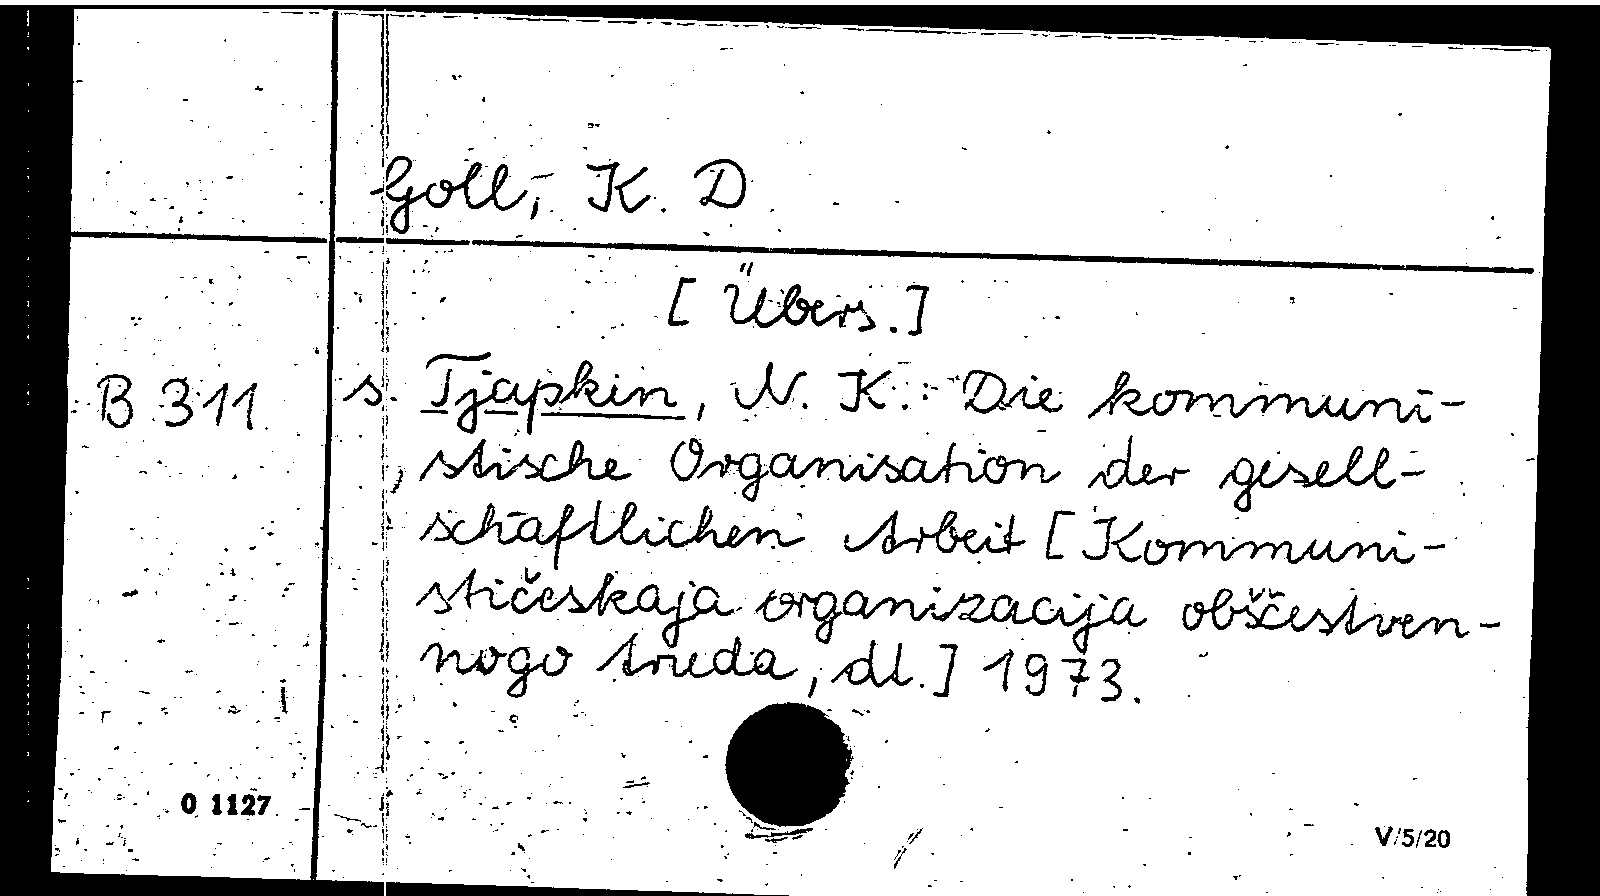 Goll, K. D
[Übers.]
B 311 s. Tjapkin, N. K.: Die kommuni-
stische Organisation der gesell-
schaftlichen Arbeit [Kommuni-
stičeskaja organizacija obščestven-
nogo truda, dt.] 1973.
0 1127
V/5/20